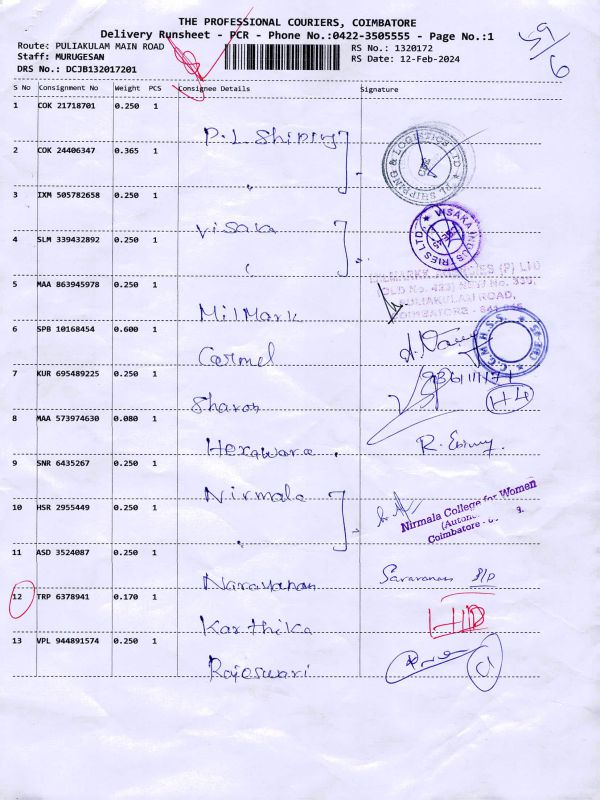 THE PROFESSIONAL COURIERS, COIMBATORE
Delivery Runsheet - PCR - Phone No.:0422-3505555 - Page No.:1
Route: PULIAKULAM MAIN ROAD
RS No.: 1320172
Staff: MURUGESAN
RS Date: 12-Feb-2024
DRS No.: DCJB132017201
59/6
S No Consignment No Weight PCS Consignee Details Signature
1 COK 21718701 0.250 1 P.L Shipping
2 COK 24406347 0.365 1 "
SHIPPING & LOGISTICS LTD
3 IXM 505782658 0.250 1 Visaka
4 SLM 339432892 0.250 1 "
VISAKA INDUSTRIES LTD
5 MAA 863945978 0.250 1 MilMark
(OLD No. 423) NEW No. 339,
PULIAKULAM ROAD,
6 SPB 10168454 0.600 1 Carmel
C.G.M.H.S.S.
7 KUR 695489225 0.250 1 Sharon
H4
8 MAA 573974630 0.080 1 Hexaware
9 SNR 6435267 0.250 1 Nirmala
10 HSR 2955449 0.250 1 "
Nirmala College for Women
Coimbatore
11 ASD 3524087 0.250 1 Narayanan Saravanan S/O
12 TRP 6378941 0.170 1 Karthika
13 VPL 944891574 0.250 1 Rajeswari